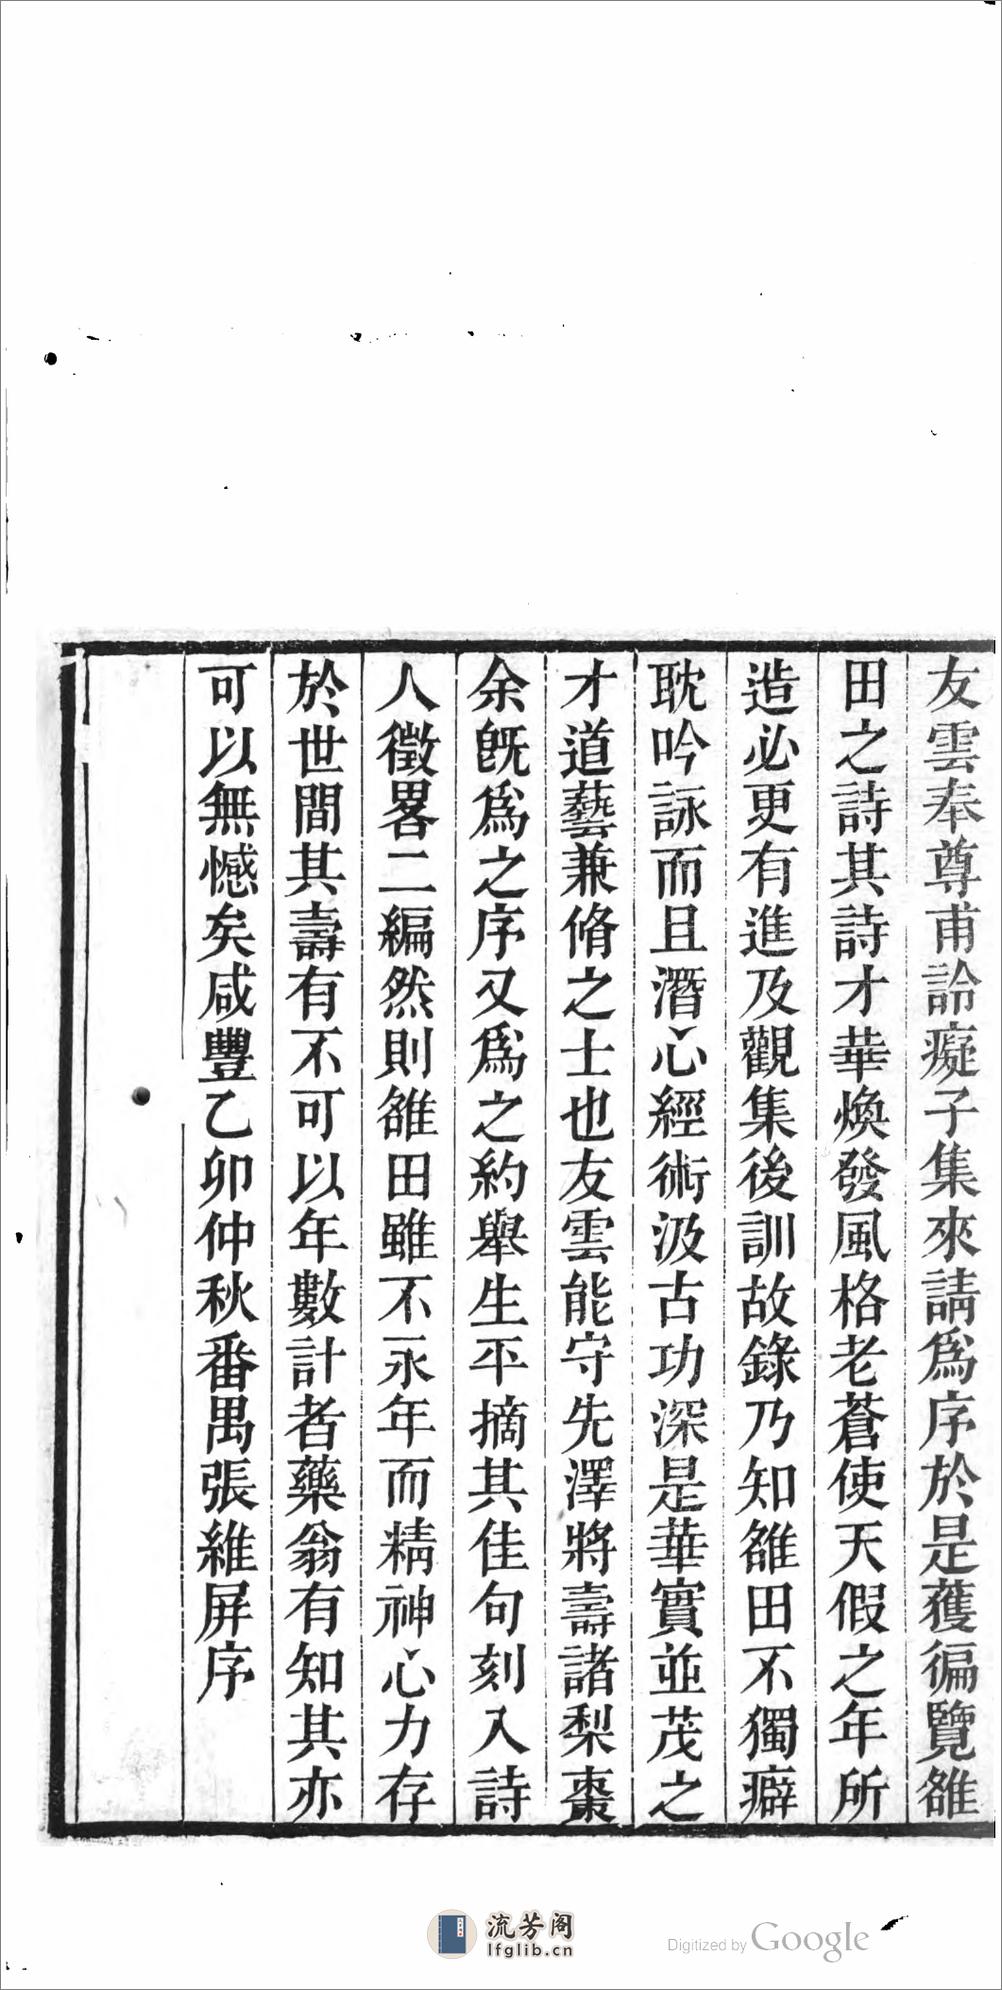 友雲奉尊甫詅癡子集來請爲序於是獲徧覽雒
田之詩其詩才華煥發風格老蒼使天假之年所
造必更有進及觀集後訓故錄乃知雒田不獨癖
耽吟詠而且潛心經術汲古功深是華實並茂之
才道藝兼脩之士也友雲能守先澤將壽諸梨棗
余旣爲之序又爲之約舉生平摘其佳句刻入詩
人徵畧二編然則雒田雖不永年而精神心力存
於世間其壽有不可以年數計者藥翁有知其亦
可以無憾矣咸豐乙卯仲秋番禺張維屏序
流芳阁
lfglib.cn
Digitized by Google